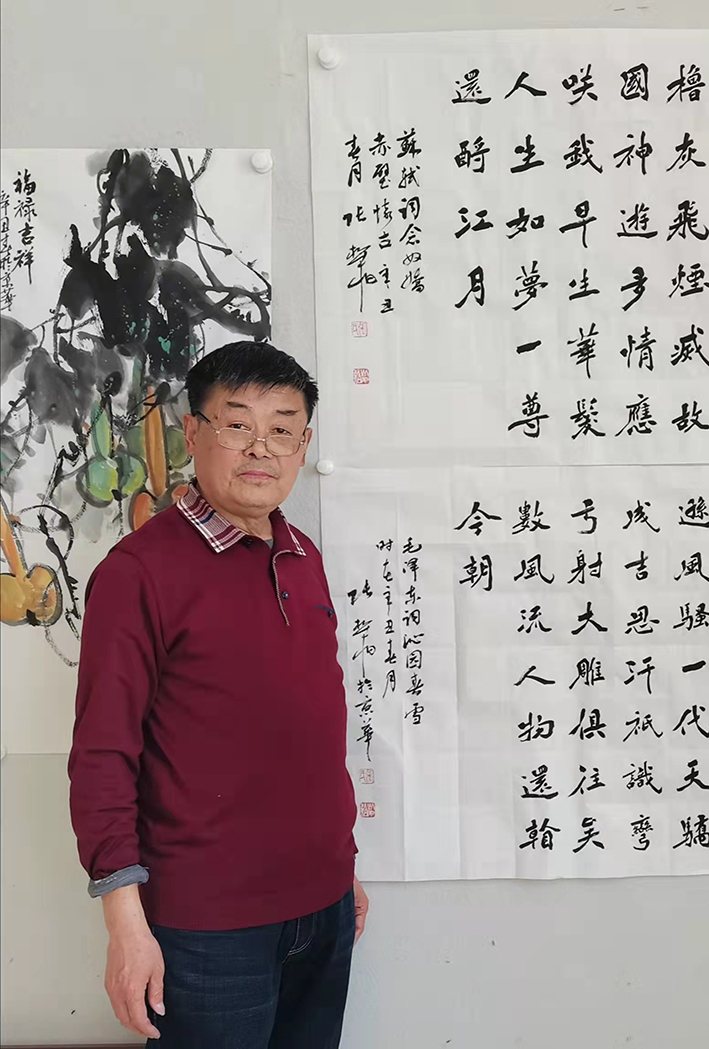 福禄吉祥
辛丑春於京華
櫓灰飛煙滅故
國神遊多情應
咲我早生華髮
人生如夢一尊
還酹江月
蘇軾词念奴嬌
赤壁懷古辛丑
春月 张
遜風騷一代天驕
成吉思汗祇識彎
弓射大雕俱往矣
數風流人物還看
今朝
毛泽东词沁园春雪
时在辛丑春月
张 於京華